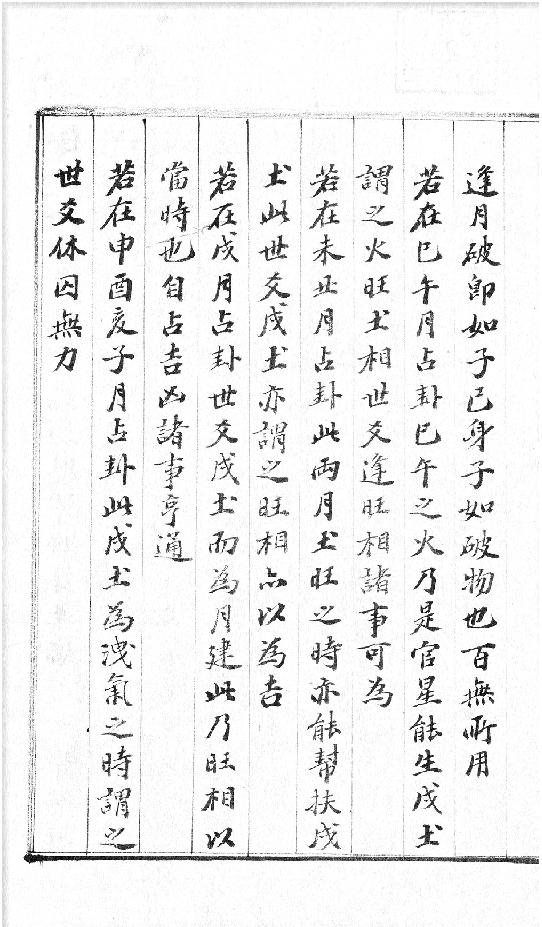 逢月破即如子己身子如破物也百無所用
若在巳午月占卦巳午之火乃是官星能生戌土
謂之火旺土相世爻逢旺相諸事可為
若在未丑月占卦此兩月土旺之時亦能幫扶戌
土此世爻戌土亦謂之旺相亦以為吉
若在戌月占卦世爻戌土而為月建此乃旺相以
當時也自占吉凶諸事亨通
若在申酉亥子月占卦此戌土為洩氣之時謂之
世爻休囚無力